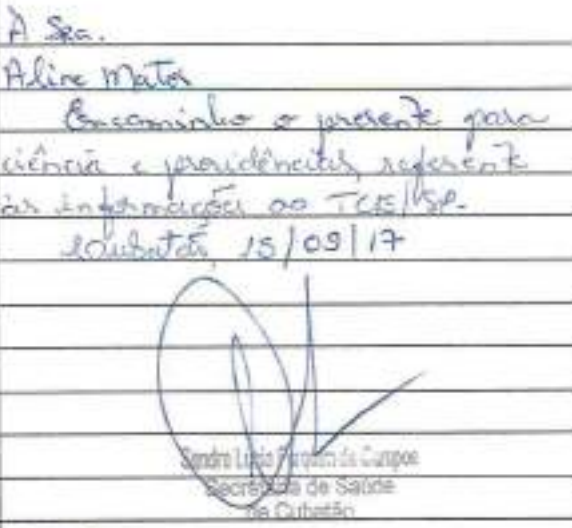 À Sra.
Aline Matos
Encaminho o presente para
ciência e providências referente
às informações ao TCE/SP.
Cubatão, 15/09/17
Sandro de Campos
Secretaria de Saúde
de Cubatão